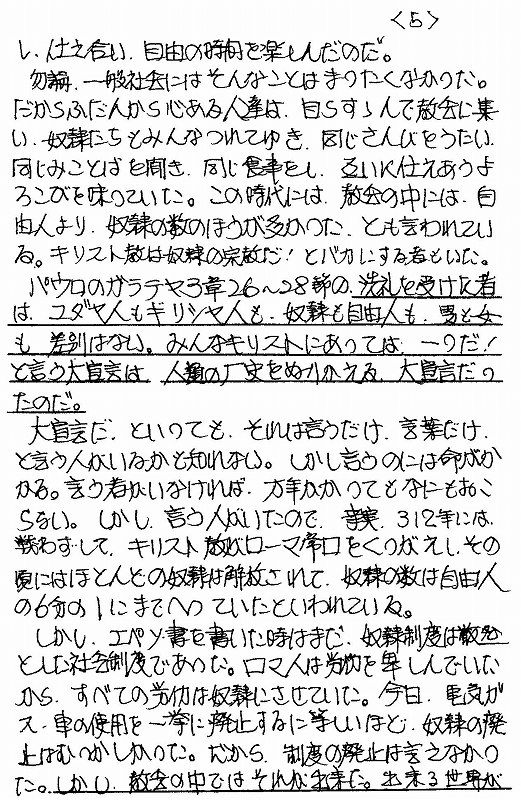 <5>
し、仕え合い、自由の時間を楽しんだのだ。
勿論、一般社会にはそんなことはまったくなかった。
だからふだんから心ある人達は、自らすすんで教会に集
い、奴隷たちもみんなつれてゆき、同じさんびをうたい、
同じみことばを聞き、同じ食事をし、互いに仕えあうよ
ろこびを味っていた。この時代には、教会の中には、自
由人より、奴隷の数のほうが多かった、とも言われてい
る。キリスト教は奴隷の宗教だ!とバカにする者もいた。
パウロのガラテヤ3章26〜28節の、洗礼を受けた者
は、ユダヤ人もギリシヤ人も、奴隷も自由人も、男も女
も、差別はない。みんなキリストにあっては、一つだ!
と言う大宣言は、人類の歴史をぬりかえる、大宣言だっ
たのだ。
大宣言だ、といっても、それは言うだけ、言葉だけ、
と言う人がいるかも知れない。しかし言うのには命がか
かる。言う者がいなければ、万年かかってもなにもおこ
らない。しかし、言う人がいたので、事実、312年には、
戦わずして、キリスト教がローマ帝国をくつがえし、その
頃にはほとんどの奴隷は解放されて、奴隷の数は自由人
の6分の1にまでへっていたといわれている。
しかし、エペソ書を書いた時はまだ、奴隷制度は
とした社会制度であった。ロマ人は労働を卑しんでいた
から、すべての労働は奴隷にさせていた。今日、電気ガ
ス・車の使用を一挙に廃止するに等しいほど、奴隷の廃
止はむつかしかった。だから、制度の廃止は言えなかっ
た。しかし、教会の中ではそれが出来た。出来る世界が